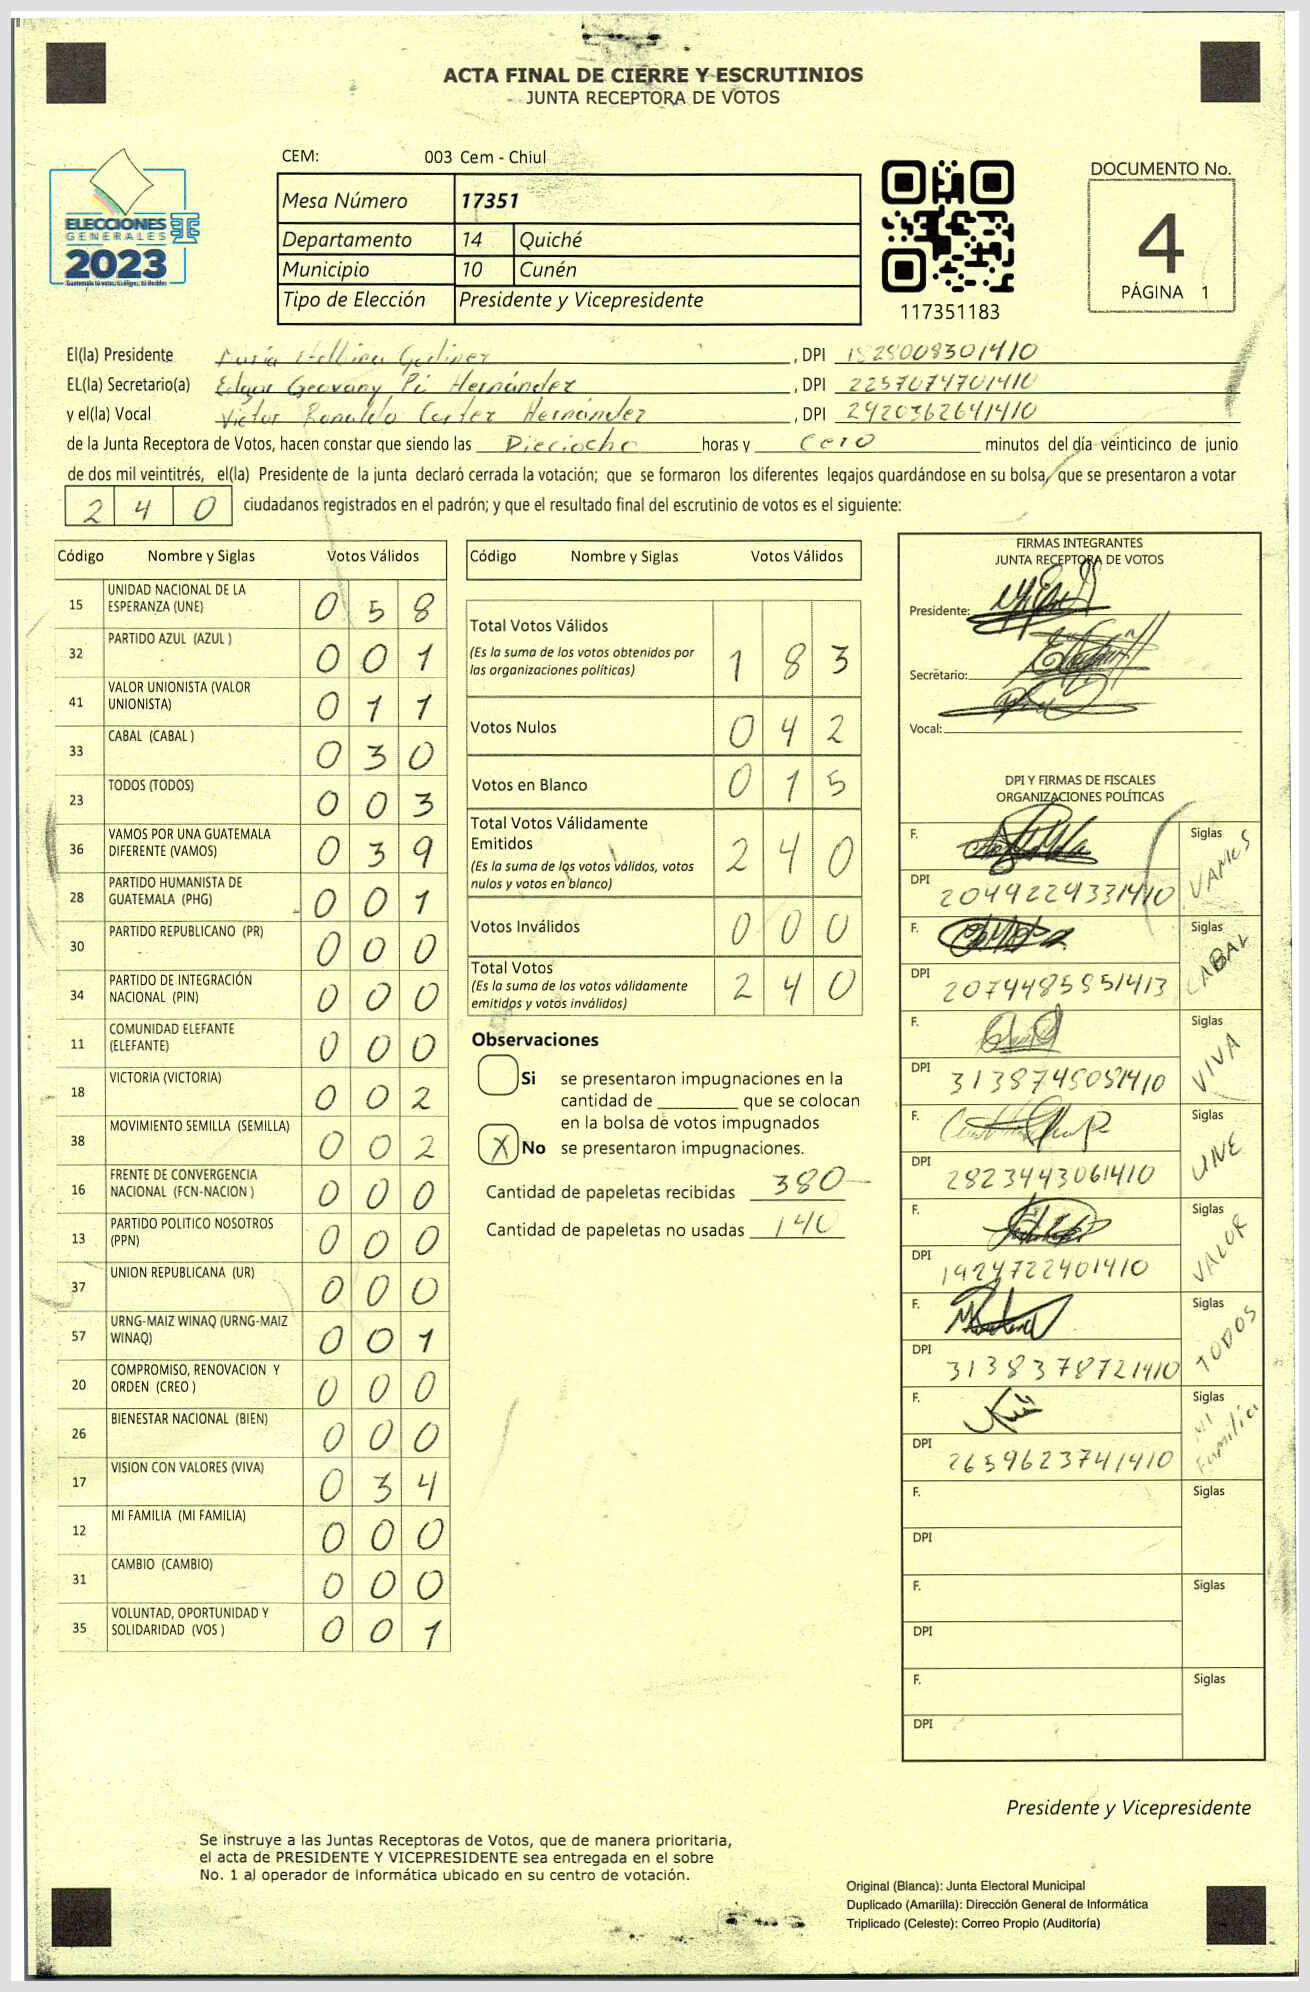 ACTA FINAL DE CIERRE Y ESCRUTINIOS
JUNTA RECEPTORA DE VOTOS
CEM: 003 Cem - Chiul
ELECCIONES
GENERALES
2023
Mesa Número 17351
Departamento 14 Quiché
Municipio 10 Cunén
Tipo de Elección Presidente y Vicepresidente
117351183
DOCUMENTO No.
4
PÁGINA 1
El(la) Presidente María , DPI 1525008301410
EL(la) Secretario(a) Edgar Geovany Pí Hernández , DPI 2257074701410
y el(la) Vocal Victor Ronaldo Hernández , DPI 2420362641410
de la Junta Receptora de Votos, hacen constar que siendo las Dieciocho horas y Cero minutos del día veinticinco de junio
de dos mil veintitrés, el(la) Presidente de la junta declaró cerrada la votación; que se formaron los diferentes legajos quardándose en su bolsa, que se presentaron a votar
2 4 0 ciudadanos registrados en el padrón; y que el resultado final del escrutinio de votos es el siguiente:
Código Nombre y Siglas Votos Válidos
15 UNIDAD NACIONAL DE LA ESPERANZA (UNE) 0 5 8
32 PARTIDO AZUL (AZUL ) 0 0 1
41 VALOR UNIONISTA (VALOR UNIONISTA) 0 1 1
33 CABAL (CABAL ) 0 3 0
23 TODOS (TODOS) 0 0 3
36 VAMOS POR UNA GUATEMALA DIFERENTE (VAMOS) 0 3 9
28 PARTIDO HUMANISTA DE GUATEMALA (PHG) 0 0 1
30 PARTIDO REPUBLICANO (PR) 0 0 0
34 PARTIDO DE INTEGRACIÓN NACIONAL (PIN) 0 0 0
11 COMUNIDAD ELEFANTE (ELEFANTE) 0 0 0
18 VICTORIA (VICTORIA) 0 0 2
38 MOVIMIENTO SEMILLA (SEMILLA) 0 0 2
16 FRENTE DE CONVERGENCIA NACIONAL (FCN-NACION ) 0 0 0
13 PARTIDO POLITICO NOSOTROS (PPN) 0 0 0
37 UNION REPUBLICANA (UR) 0 0 0
57 URNG-MAIZ WINAQ (URNG-MAIZ WINAQ) 0 0 1
20 COMPROMISO, RENOVACION Y ORDEN (CREO ) 0 0 0
26 BIENESTAR NACIONAL (BIEN) 0 0 0
17 VISION CON VALORES (VIVA) 0 3 4
12 MI FAMILIA (MI FAMILIA) 0 0 0
31 CAMBIO (CAMBIO) 0 0 0
35 VOLUNTAD, OPORTUNIDAD Y SOLIDARIDAD (VOS ) 0 0 1
Código Nombre y Siglas Votos Válidos
Total Votos Válidos 1 8 3
(Es la suma de los votos obtenidos por
las organizaciones políticas)
Votos Nulos 0 4 2
Votos en Blanco 0 1 5
Total Votos Válidamente
Emitidos 2 4 0
(Es la suma de los votos válidos, votos
nulos y votos en blanco)
Votos Inválidos 0 0 0
Total Votos 2 4 0
(Es la suma de los votos válidamente
emitidos y votos inválidos)
Observaciones
Si se presentaron impugnaciones en la
cantidad de ________ que se colocan
en la bolsa de votos impugnados
X No se presentaron impugnaciones.
Cantidad de papeletas recibidas 380
Cantidad de papeletas no usadas 140
FIRMAS INTEGRANTES
JUNTA RECEPTORA DE VOTOS
Presidente:
Secretario:
Vocal:
DPI Y FIRMAS DE FISCALES
ORGANIZACIONES POLÍTICAS
F. Siglas VAMOS
DPI 2049224331410
F. Siglas CABAL
DPI 2074485851413
F. Siglas VIVA
DPI 3138745051410
F. Siglas UNE
DPI 2823443061410
F. Siglas VALOR
DPI 1924722401410
F. Siglas TODOS
DPI 3138378721410
F. Siglas MI Familia
DPI 2659623741410
F. Siglas
DPI
F. Siglas
DPI
F. Siglas
DPI
Presidente y Vicepresidente
Se instruye a las Juntas Receptoras de Votos, que de manera prioritaria,
el acta de PRESIDENTE Y VICEPRESIDENTE sea entregada en el sobre
No. 1 al operador de informática ubicado en su centro de votación.
Original (Blanca): Junta Electoral Municipal
Duplicado (Amarilla): Dirección General de Informática
Triplicado (Celeste): Correo Propio (Auditoría)